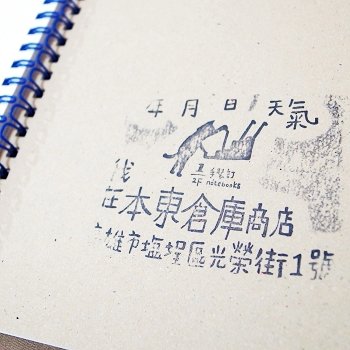 年 月 日 天氣
手製訂
2F notebooks
我
在本東倉庫商店
高雄市塩埕區光榮街1號